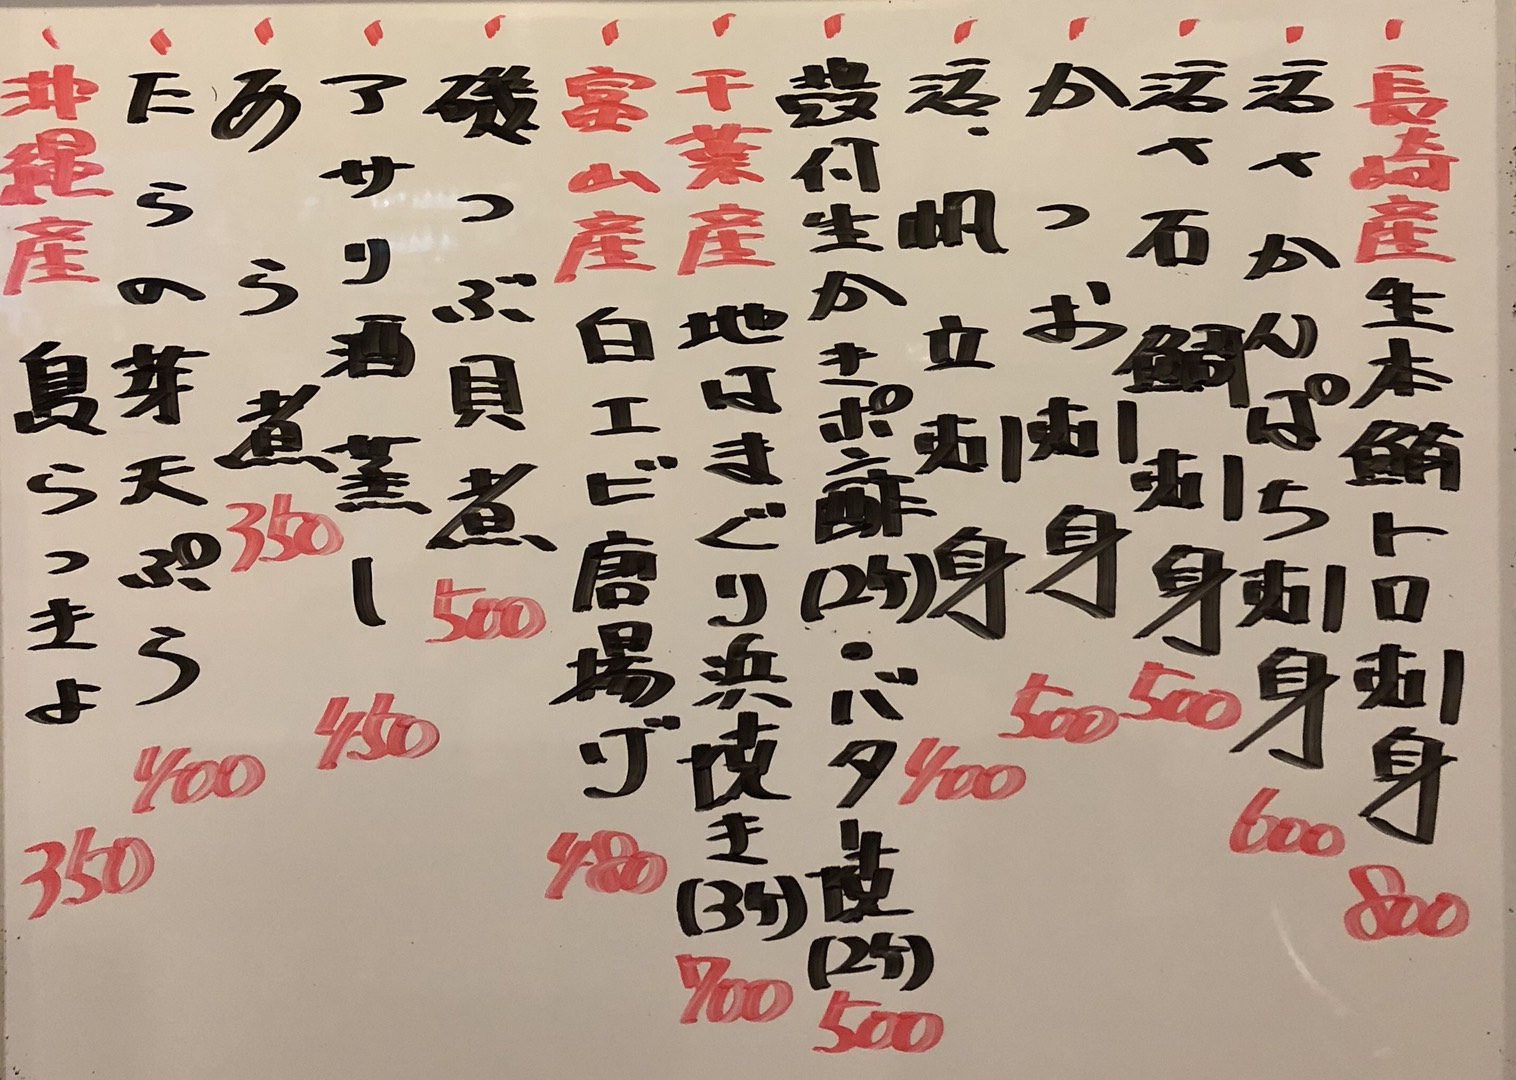 長崎産生本鮪トロ刺身 800
活〆かんぱち刺身 600
活〆石鯛刺身 500
かつお刺身 500
活・帆立刺身 400
殻付生かきポン酢(2ケ)・バター焼(2ケ) 500
千葉産地はまぐり浜焼き(3ケ) 700
富山産白エビ唐揚げ 480
磯つぶ貝煮 500
アサリ酒蒸し 450
あら煮 350
たらの芽天ぷら 400
沖縄産島らっきょ 350